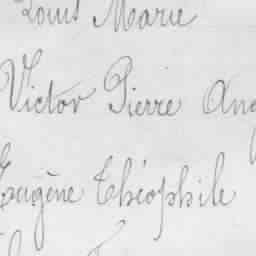 Louis Marie
Victor Pierre Aug
Eugène Théophile